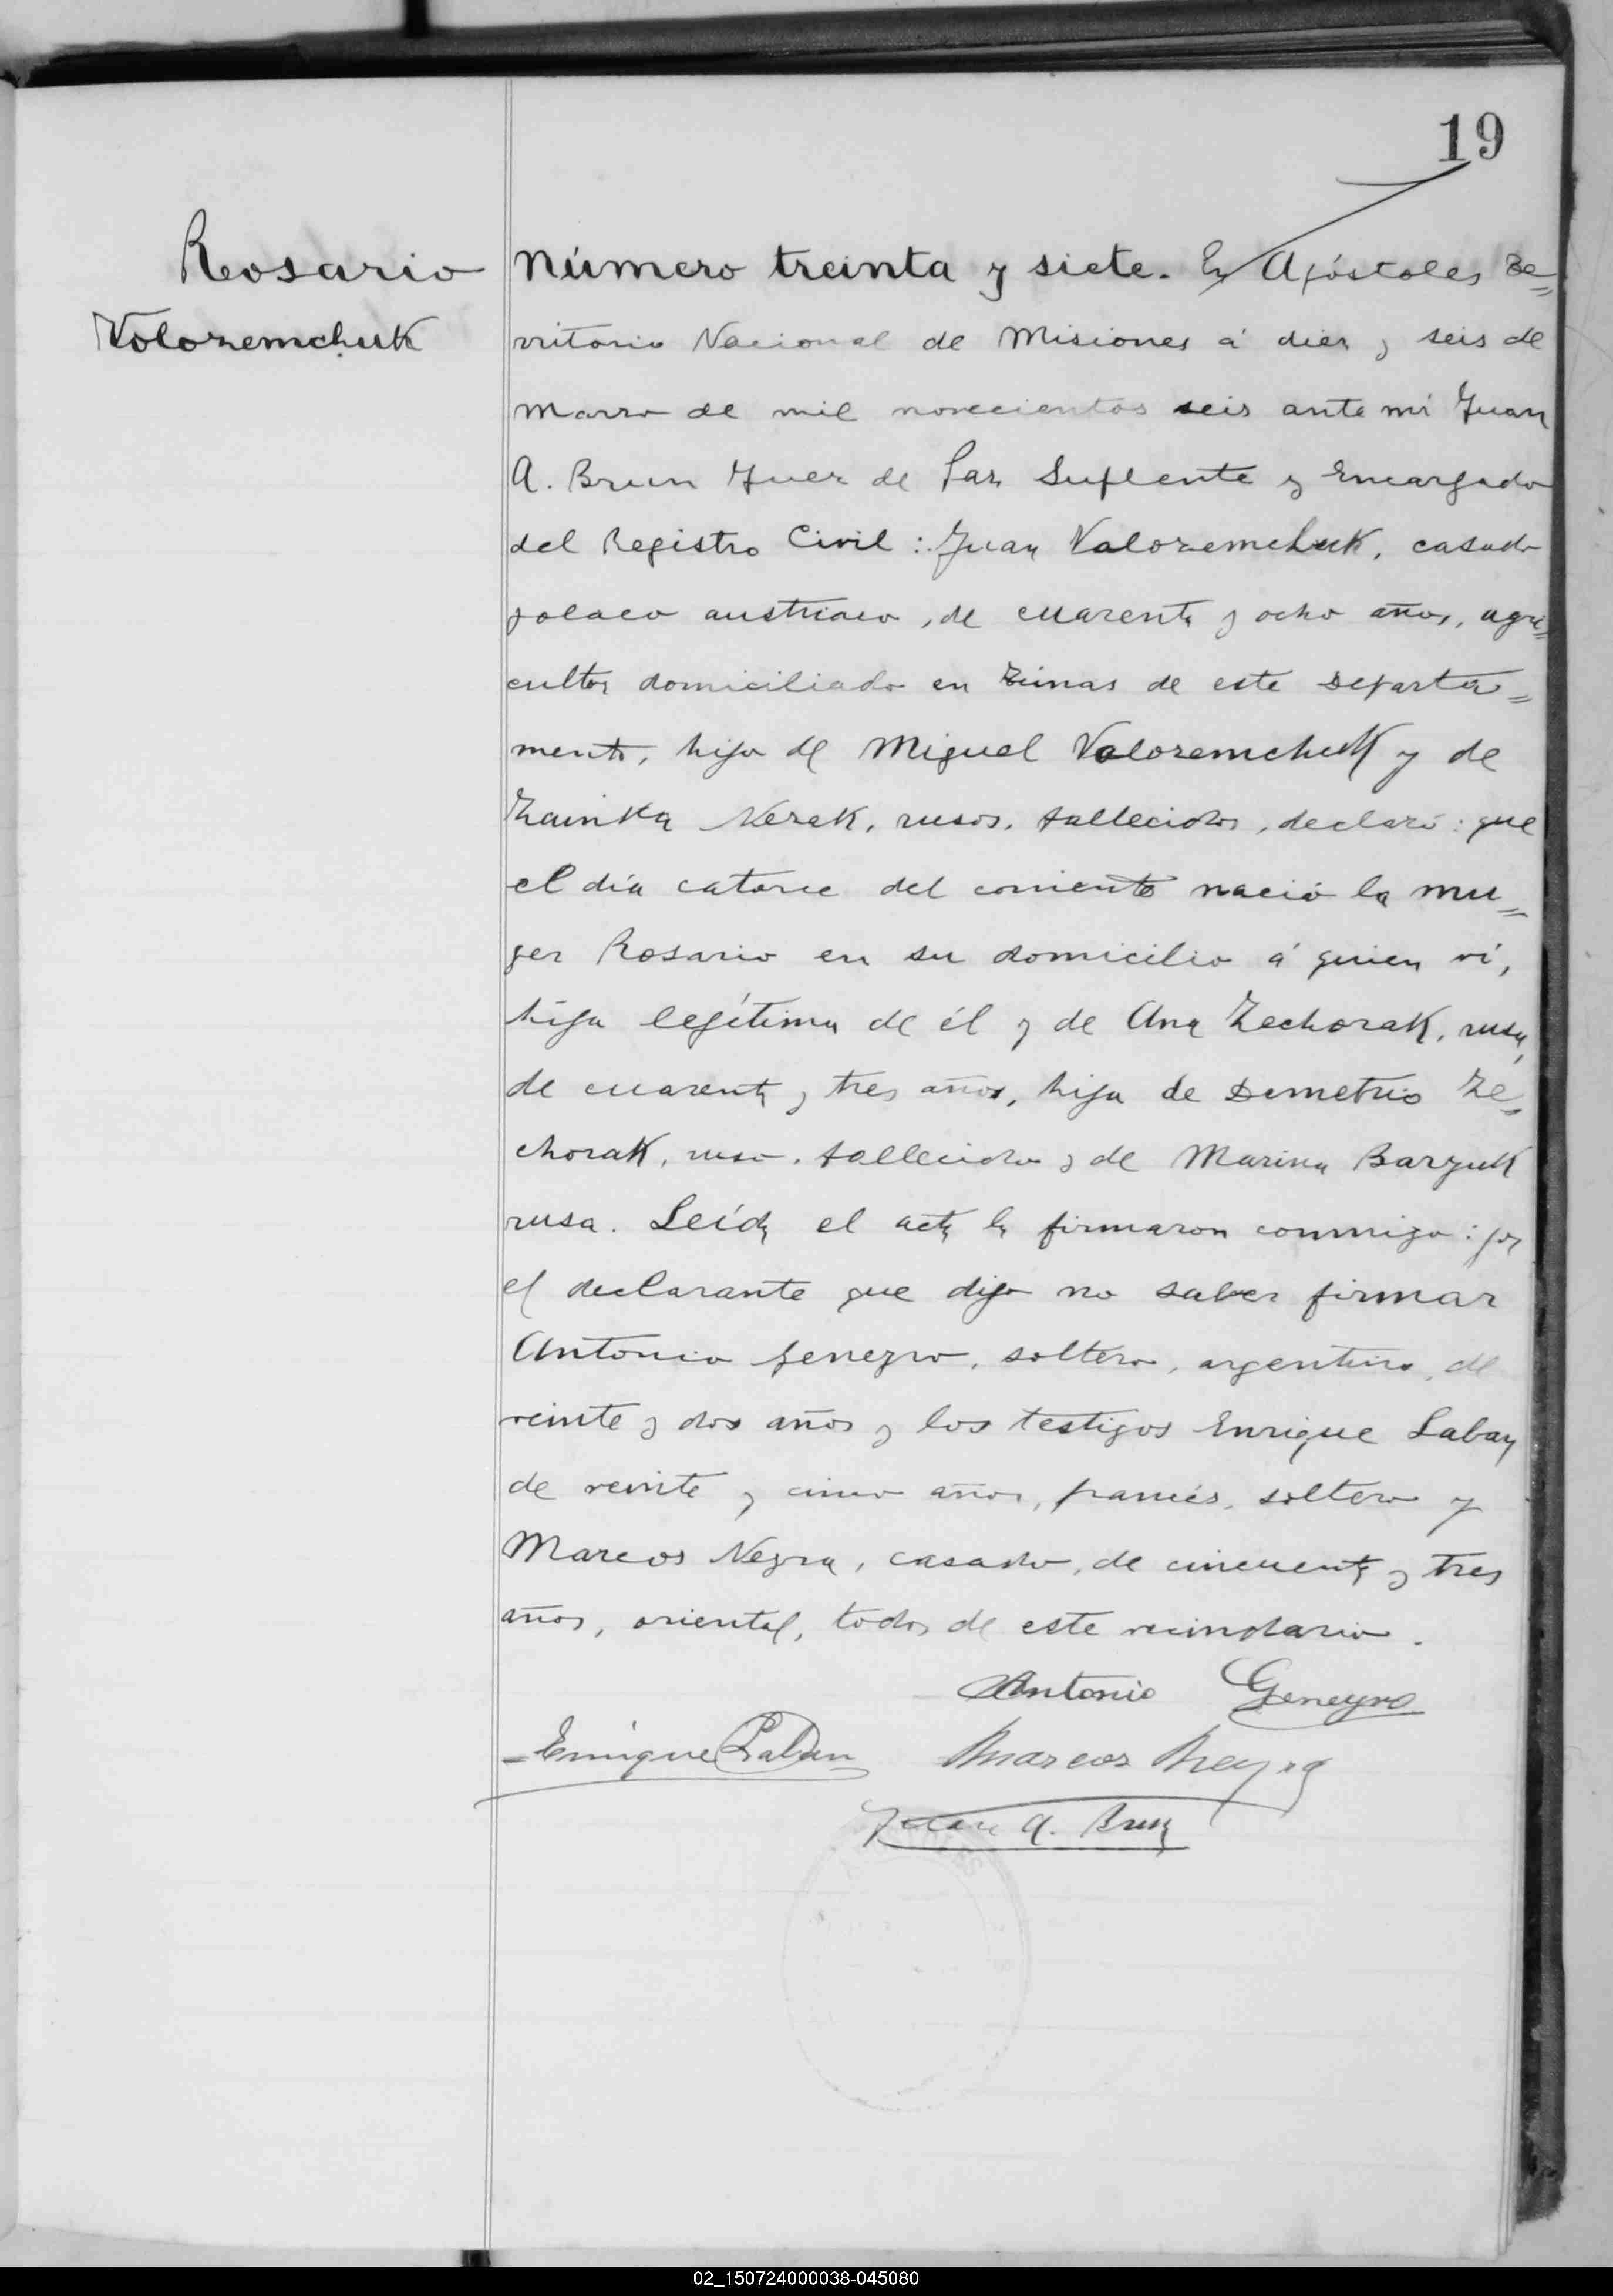 19
Rosario
Volozemchuk
Número treinta y siete. En Apóstoles Te=
rritorio Nacional de Misiones á diez y seis de
Marzo de mil novecientos seis ante mí Juan
A. Brun Juez de Paz Suplente y Encargado
del Registro Civil: Juan Valozemchuk, casado
polaco austriaco, de cuarenta y ocho años, agri=
cultor domiciliado en Tunas de este Departa=
mento, hijo de Miguel Valozemchuk y de
Nezak, rusos, fallecidos, declaró: que
el día catorce del corriente nació la mu=
ger Rosario en su domicilio á quien ví,
hija legítima de él y de Ana Zechorak, rusa,
de cuarenta y tres años, hija de Demetrio Ze=
chorak, ruso, fallecido y de Marina Barzuk
rusa. Leída el acta la firmaron conmigo: por
el declarante que dijo no saber firmar
Antonio Geneyro, soltero, argentino, de
veinte y dos años y los testigos Enrique Laban
de veinte y cinco años, francés, soltero y
Marcos Neyra, casado, de cincuenta y tres
años, oriental, todos de este vecindario.
Antonio Geneyro
Enrique Laban Marcos Neyra
Juan A. Brun
02_150724000038-045080